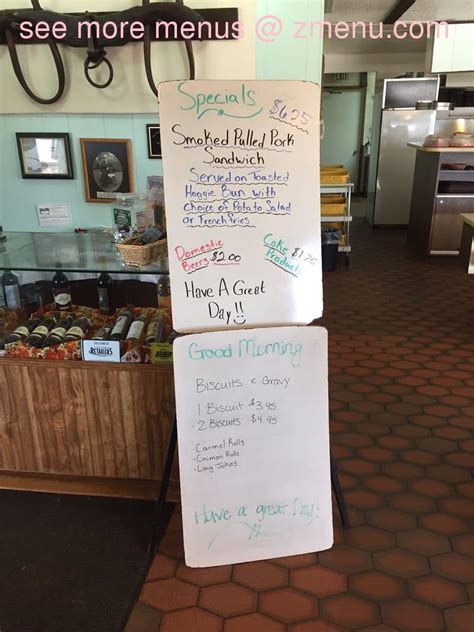 see more menus @ zmenu.com
EXIT
Specials
$6.25
Smoked Pulled Pork
Sandwich
Served on Toasted
Hoggie Bun with
Choice of Potato Salad
or French fries
Domestic
Beers $2.00
Coke
Product $1.75
Have A Great
Day!!
RETAILERS
Good Morning
Biscuits & Gravy
1 Biscuit $3.45
2 Biscuits $4.95
Carmel Rolls
Cnimon Rolls
Long Johns
Have a great Day!